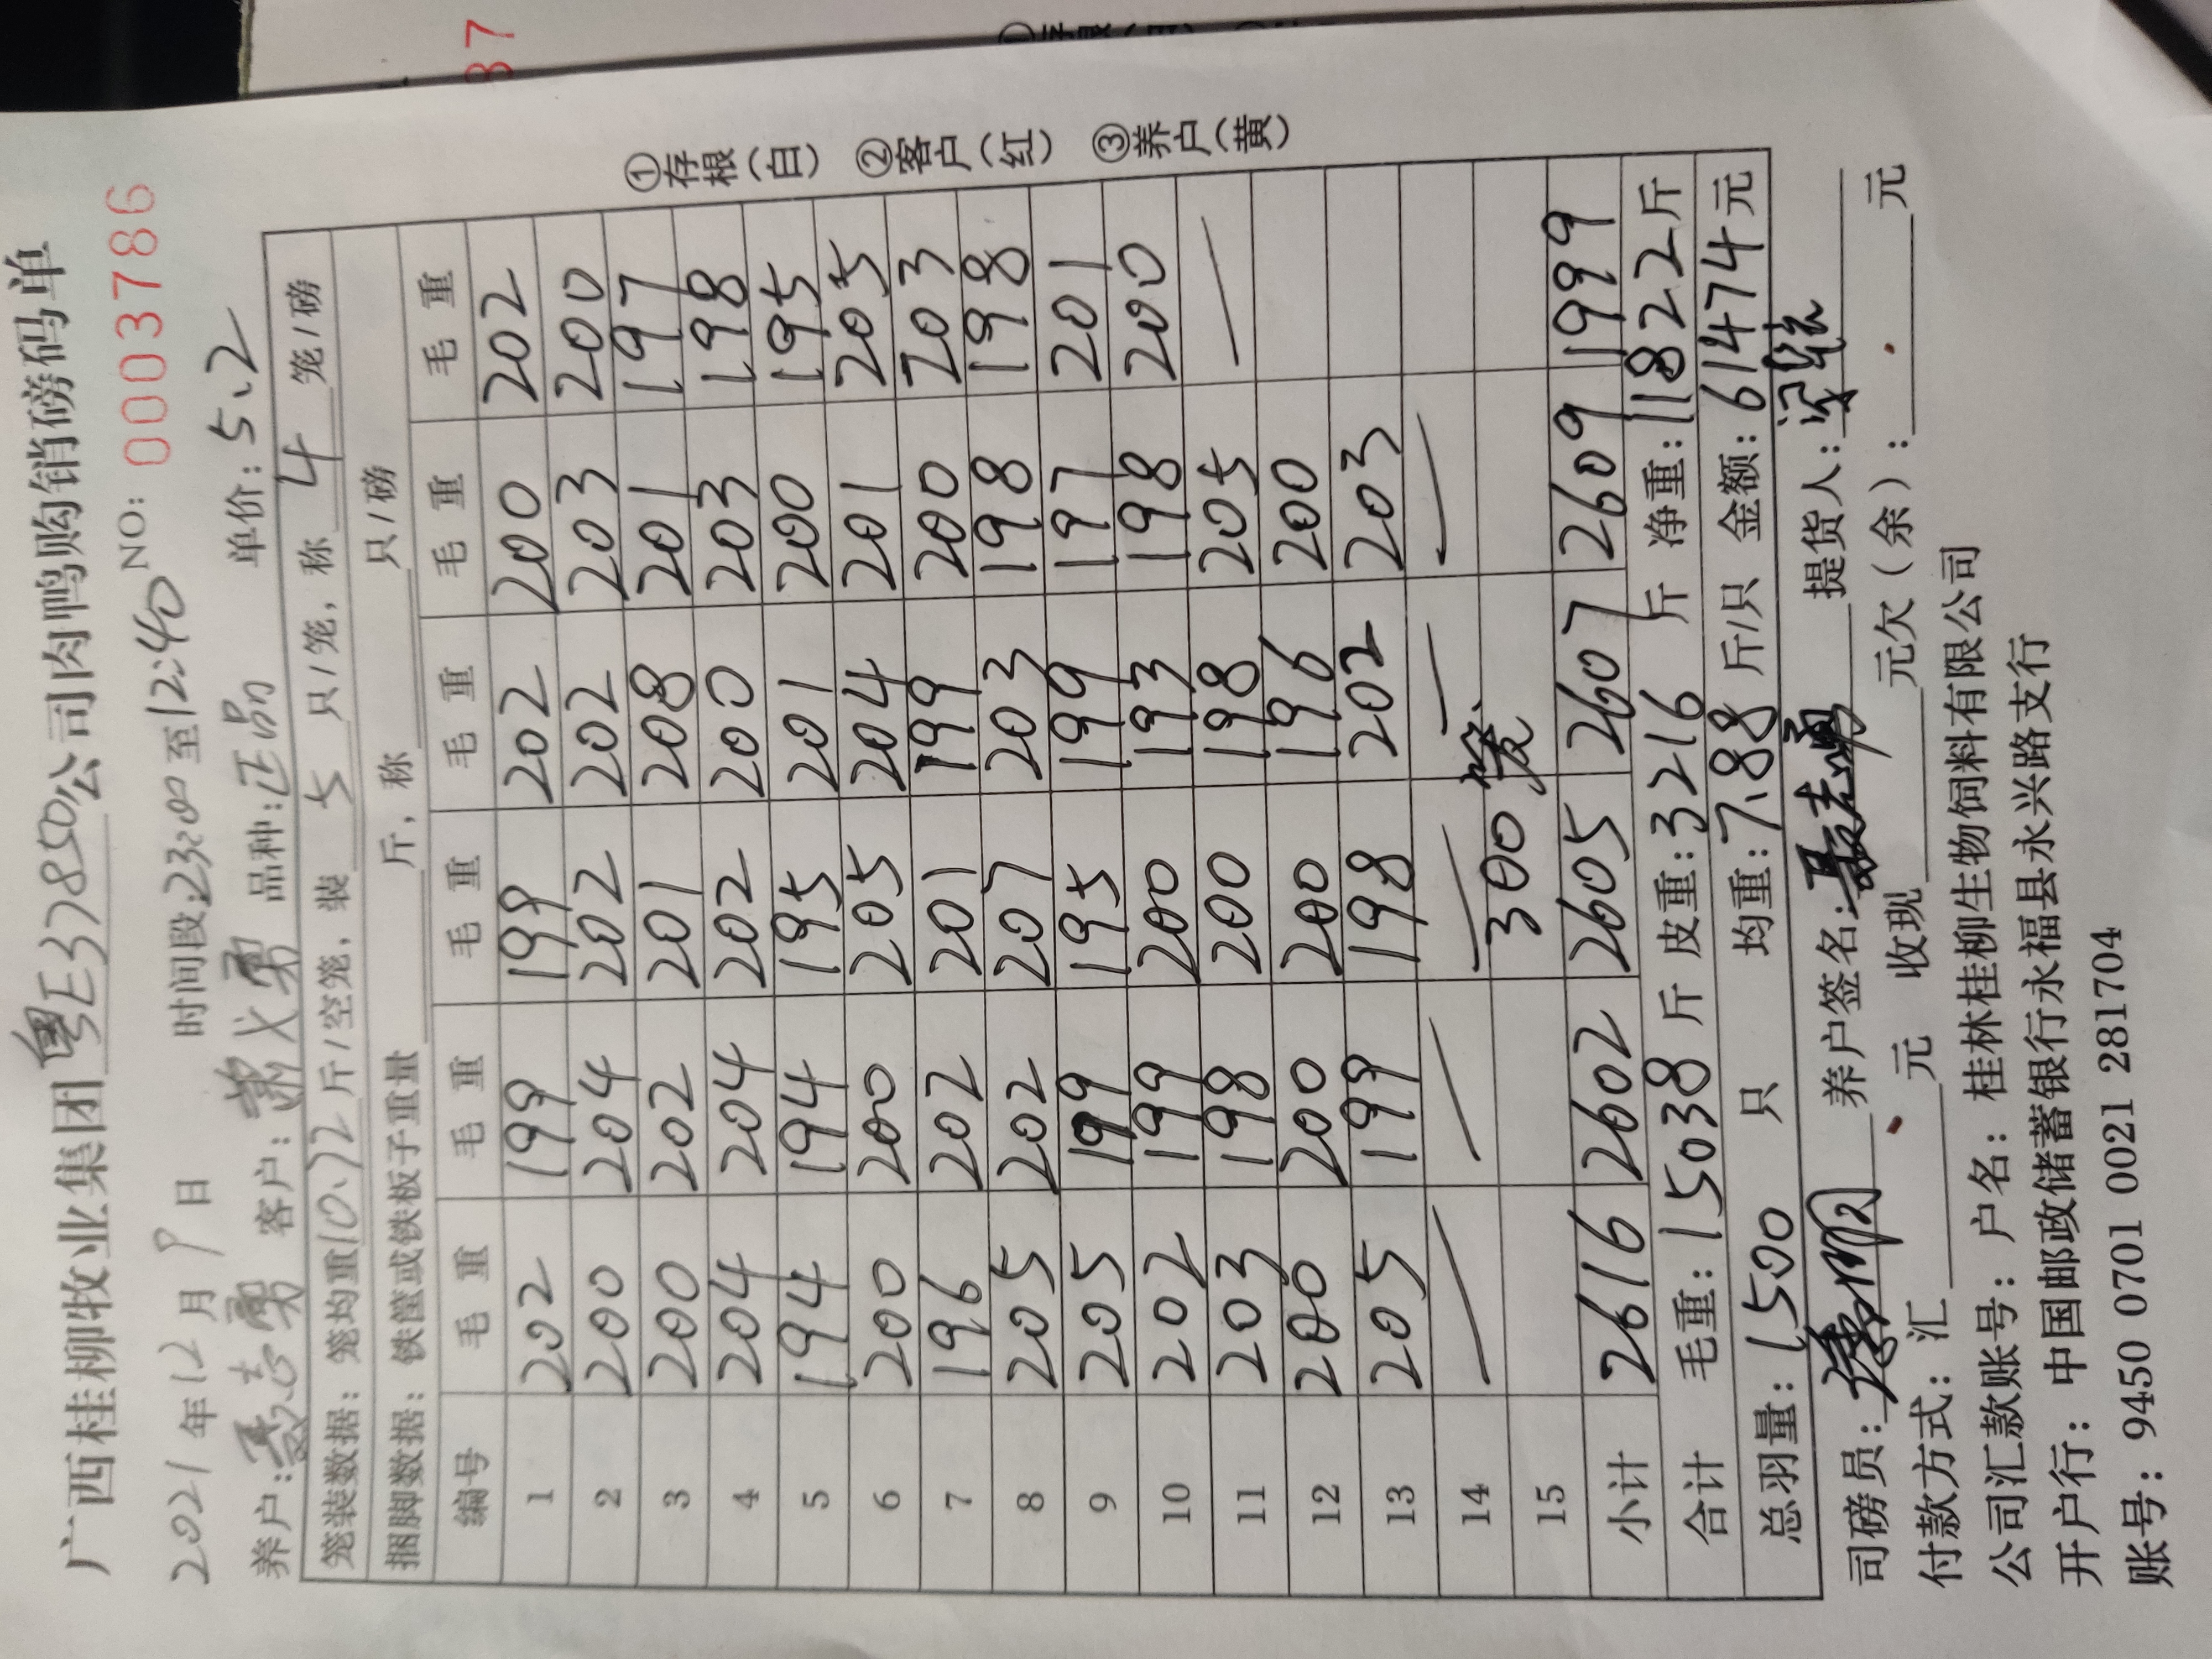 广西桂柳牧业集团粤E37850公司肉鸭购销磅码单
2021年12月9日 时间段:23:00至12:40 NO: 0003786
养户: 客户: 品种:正品 单价:5.2
笼装数据:笼均重10.72斤/空笼,装 5 只/笼,称 4 笼/磅
捆脚数据:铁筐或铁板子重量 斤,称 只/磅
编号 毛重 毛重 毛重 毛重 毛重 毛重
1 202 199 199 202 200 202
2 200 204 202 202 203 200
3 200 202 201 208 201 197
4 204 204 202 200 203 198
5 194 194 195 201 200 195
6 200 200 205 204 201 205
7 196 202 201 199 200 203
8 205 202 207 203 198 198
9 205 199 195 199 197 201
10 202 199 200 193 198 200
11 203 198 200 198 205 —
12 200 200 200 196 200
13 205 199 198 202 203
14 — — — — —
15 300笼
小计 2616 2602 2605 2607 2609 1999
合计 毛重:15038斤 皮重:3216斤 净重:11822斤
总羽量:1500 只 均重:7.88斤/只 金额:61474元
司磅员: 养户签名: 提货人:
付款方式:汇 元 收现 元欠(余): 元
公司汇款账号:户名:桂林桂柳生物饲料有限公司
开户行:中国邮政储蓄银行永福县永兴路支行
账号:9450 0701 0021 281704
①存根(白) ②客户(红) ③养户(黄)
37